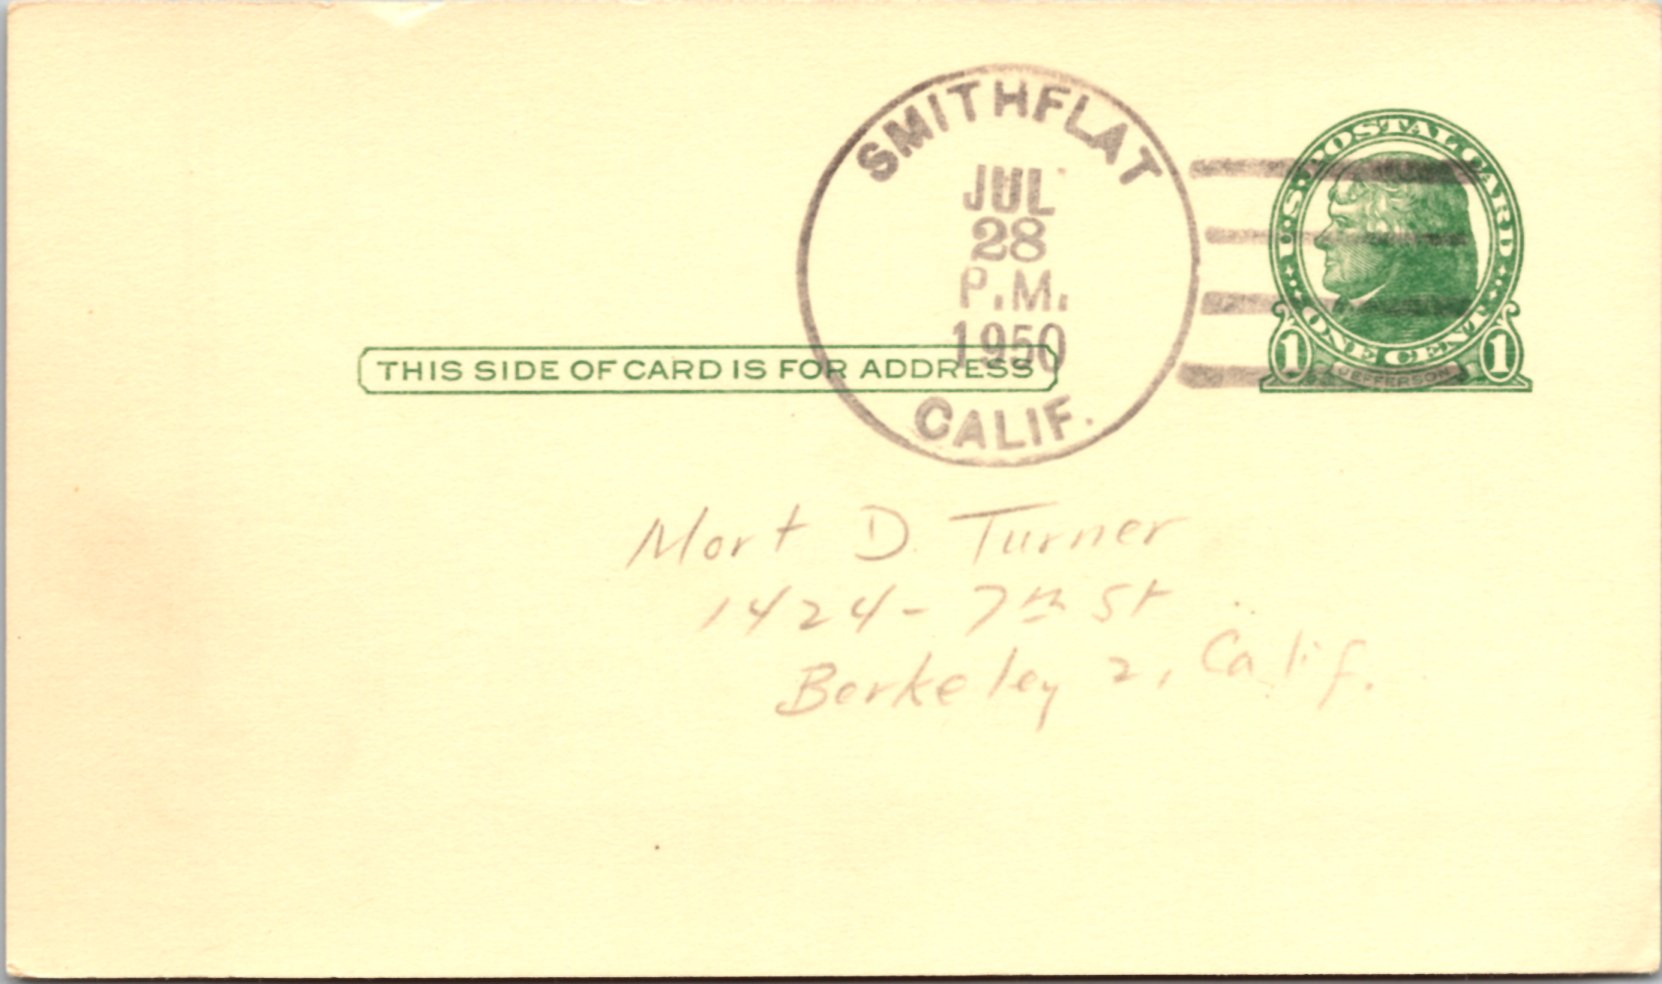 SMITHFLAT
JUL
28
P.M.
1950
CALIF.
U.S. POSTAL CARD
ONE CENT
1 1
JEFFERSON
THIS SIDE OF CARD IS FOR ADDRESS
Mort D. Turner
1424 - 7th St
Berkeley 2, Calif.